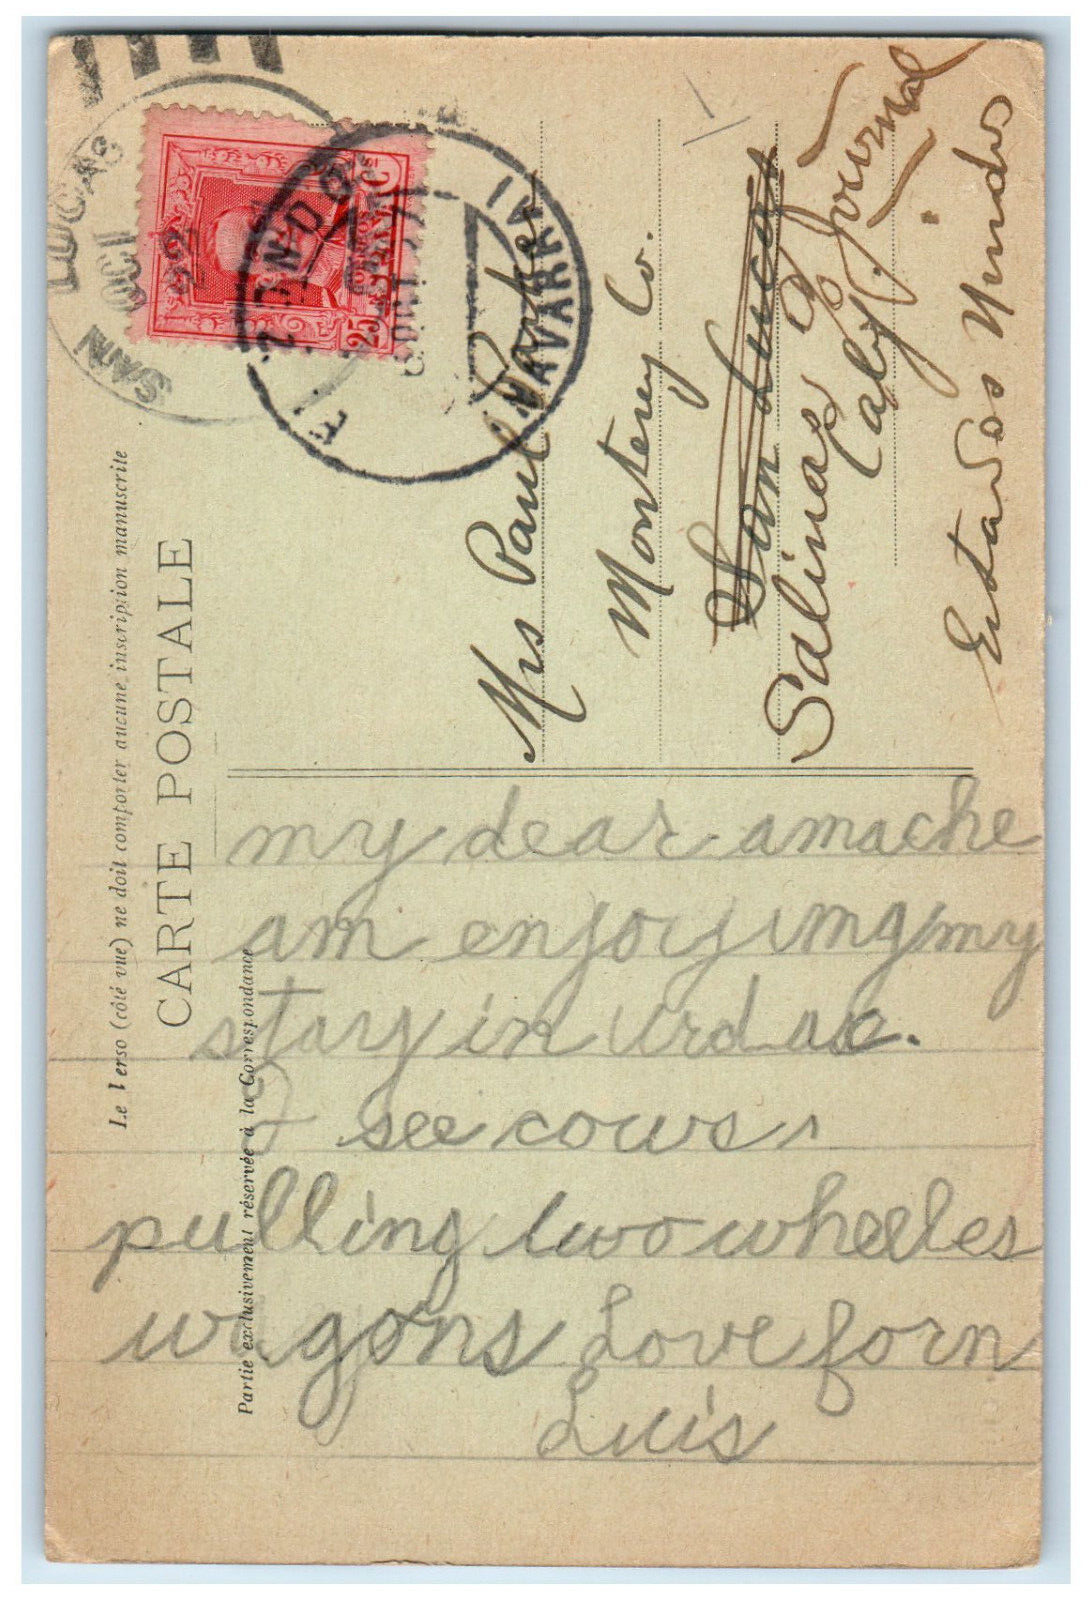 Le Verso (côté vue) ne doit comporter aucune inscription manuscrite
CARTE POSTALE
Partie exclusivement réservée à la Correspondance
SAN LUCAS
OCT 11
25 C
NAVARRA
Mrs Paul Parker
Monterey Co.
San Lucas
Salinas Journal
Calif.
Estados Unidos
my dear amache
am enjoying my
stay in Urdax.
I see cows
pulling two wheeles
wagons Love forn
Luis